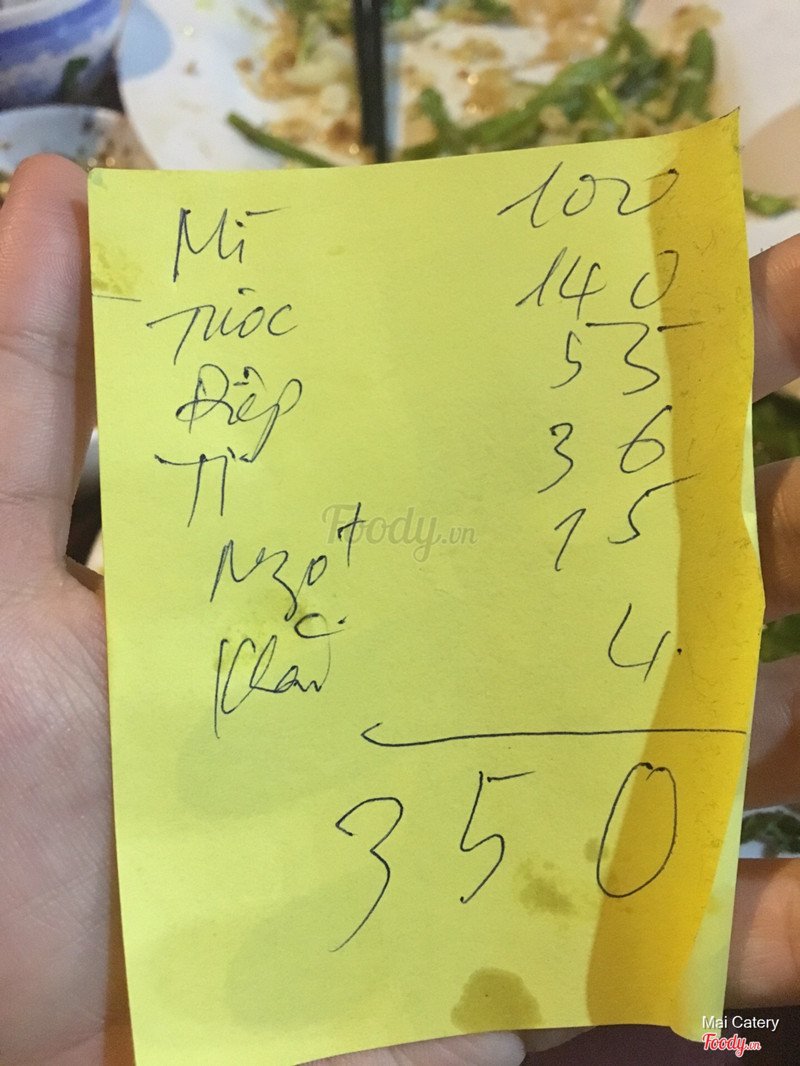 Mì 100
Trióc 140
Điệp 55
Tì 36
Ngọt 15
Khăn 4.
350
Foody.vn
Mai Catery
Foody.vn